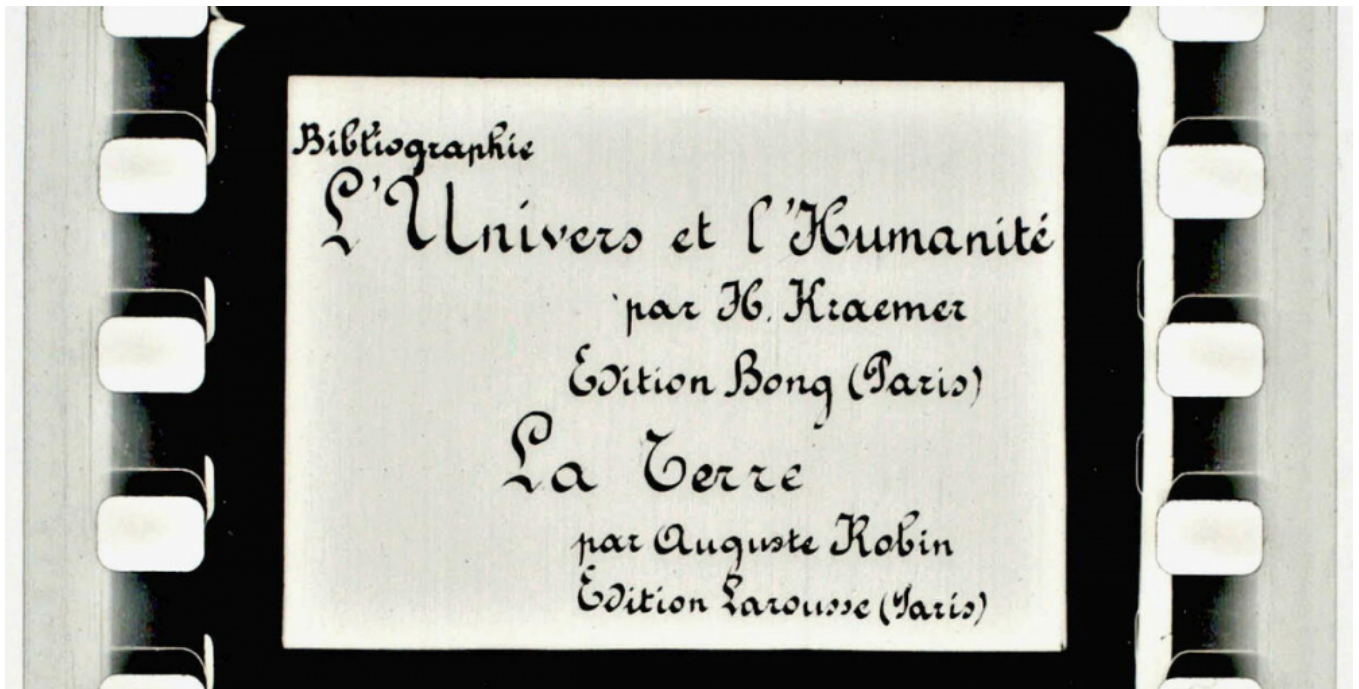 Bibliographie
L'Univers et l'Humanité
par H. Kraemer
Edition Bong (Paris)
La Terre
par Auguste Robin
Edition Larousse (Paris)